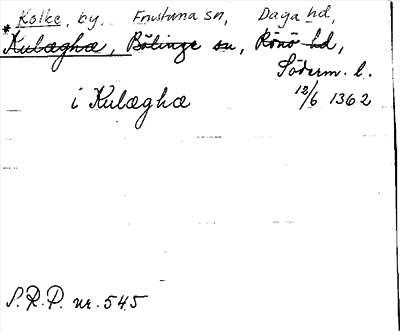 Kolke, by, Frustuna sn, Daga hd,
*Kulæghæ, Bälinge sn, Rönö hd,
Söderm. l.
i Kulæghæ 12/6 1362
S.R.P. nr. 545